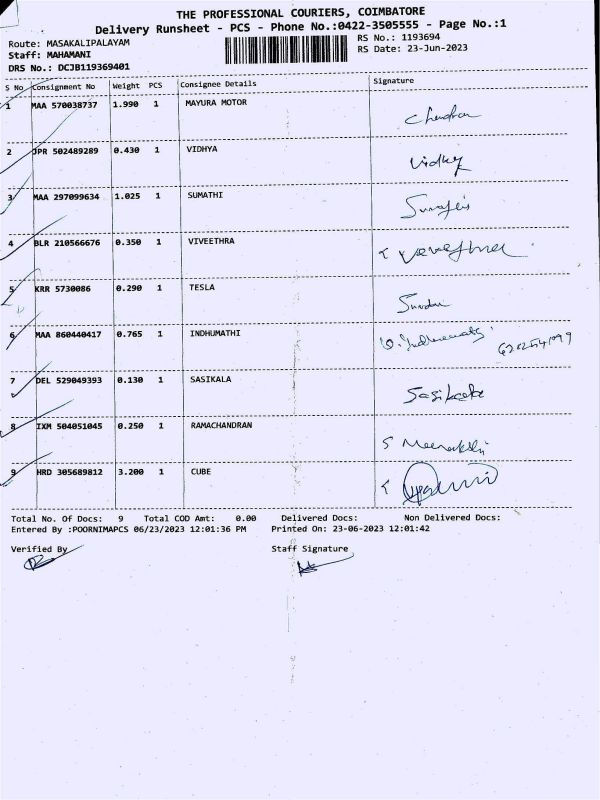 THE PROFESSIONAL COURIERS, COIMBATORE
Delivery Runsheet - PCS - Phone No.:0422-3505555 - Page No.:1
Route: MASAKALIPALAYAM RS No.: 1193694
Staff: MAHAMANI RS Date: 23-Jun-2023
DRS No.: DCJB119369401
S No Consignment No Weight PCS Consignee Details Signature
1 MAA 570038737 1.990 1 MAYURA MOTOR Chandran
2 JPR 502489289 0.430 1 VIDHYA Vidhy
3 MAA 297099634 1.025 1 SUMATHI
4 BLR 210566676 0.350 1 VIVEETHRA
5 KRR 5730086 0.290 1 TESLA
6 MAA 860440417 0.765 1 INDHUMATHI
7 DEL 529049393 0.130 1 SASIKALA Sasikala
8 IXM 504051045 0.250 1 RAMACHANDRAN S Meenakshi
9 HRD 305689812 3.200 1 CUBE
Total No. Of Docs: 9 Total COD Amt: 0.00 Delivered Docs: Non Delivered Docs:
Entered By :POORNIMAPCS 06/23/2023 12:01:36 PM Printed On: 23-06-2023 12:01:42
Verified By Staff Signature